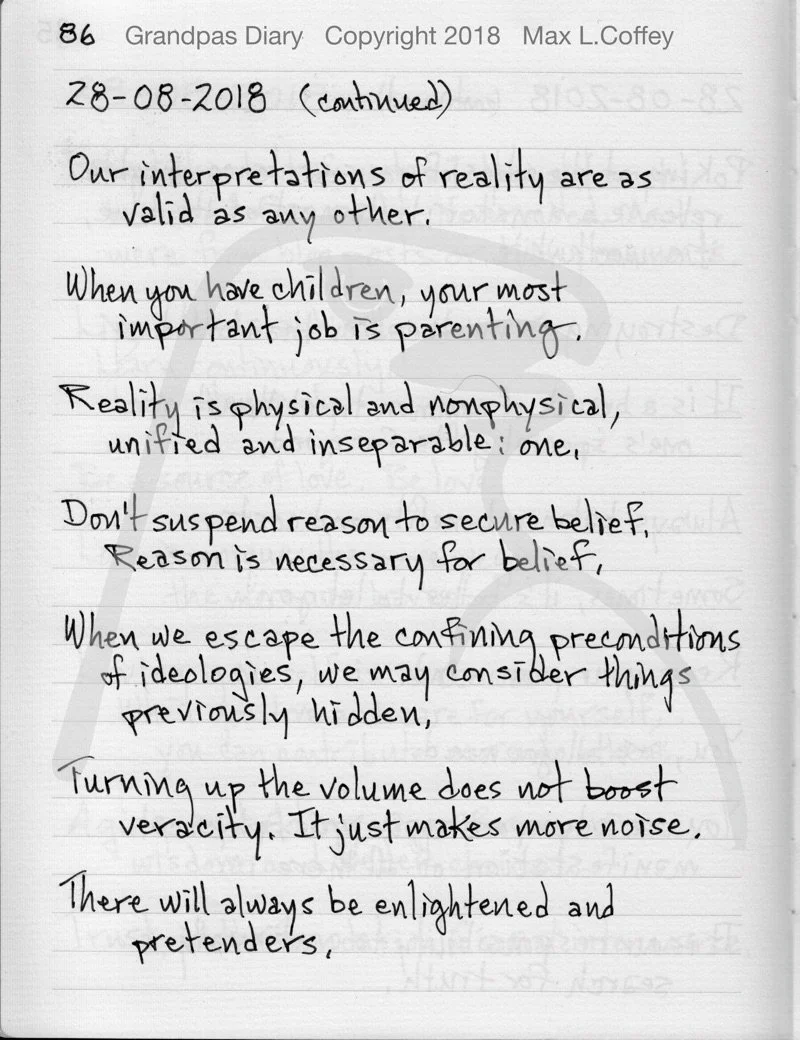 86 Grandpas Diary Copyright 2018 Max L.Coffey
28-08-2018 (continued)
Our interpretations of reality are as
valid as any other.
When you have children, your most
important job is parenting.
Reality is physical and nonphysical,
unified and inseparable: one.
Don't suspend reason to secure belief.
Reason is necessary for belief.
When we escape the confining preconditions
of ideologies, we may consider things
previously hidden.
Turning up the volume does not boost
veracity. It just makes more noise.
There will always be enlightened and
pretenders.